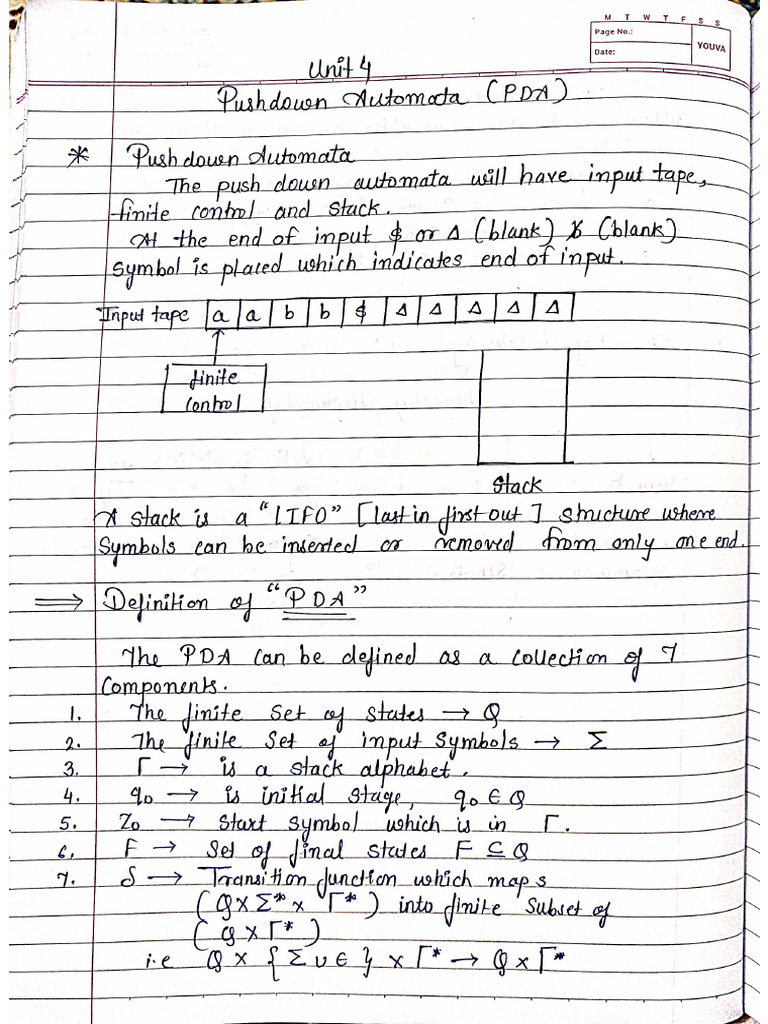 M T W T F S S
Page No.:
Date:
YOUVA
Unit 4
Pushdown Automata (PDA)
* Push down Automata
The push down automata will have input tape,
finite control and stack.
At the end of input $ or Δ (blank) ƀ (blank)
symbol is placed which indicates end of input.
Input tape a a b b $ Δ Δ Δ Δ Δ
finite
control
Stack
A stack is a "LIFO" [last in first out] structure where
symbols can be inserted or removed from only one end.
⇒ Definition of "PDA"
The PDA can be defined as a collection of 7
components.
1. The finite set of states → Q
2. The finite set of input symbols → Σ
3. Γ → is a stack alphabet.
4. q0 → is initial stage, q0 ∈ Q
5. Z0 → start symbol which is in Γ.
6. F → set of final states F ⊆ Q
7. δ → Transition function which maps
(Q × Σ* × Γ*) into finite subset of
(Q × Γ*)
i.e Q × {Σ ∪ ∈} × Γ* → Q × Γ*